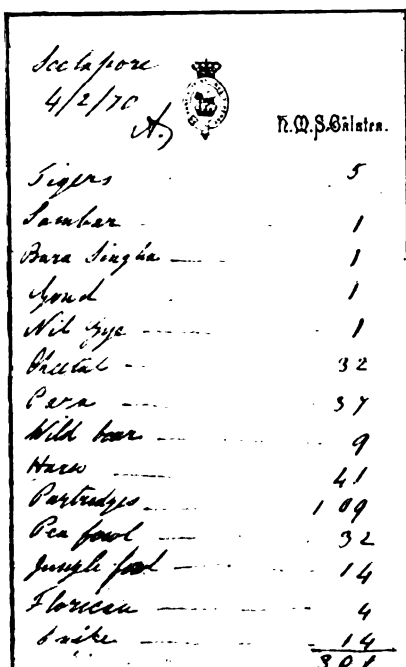 Seetapore
4/2/70
A.
H.M.S. Galatea.
Tigers 5
Sambar 1
Bara Singha 1
Gond 1
Nil Gye 1
Cheetal 32
Para 37
Wild boar 9
Hares 41
Partridges 109
Pea fowl 32
Jungle fowl 14
Florican 4
Snipe 14
301